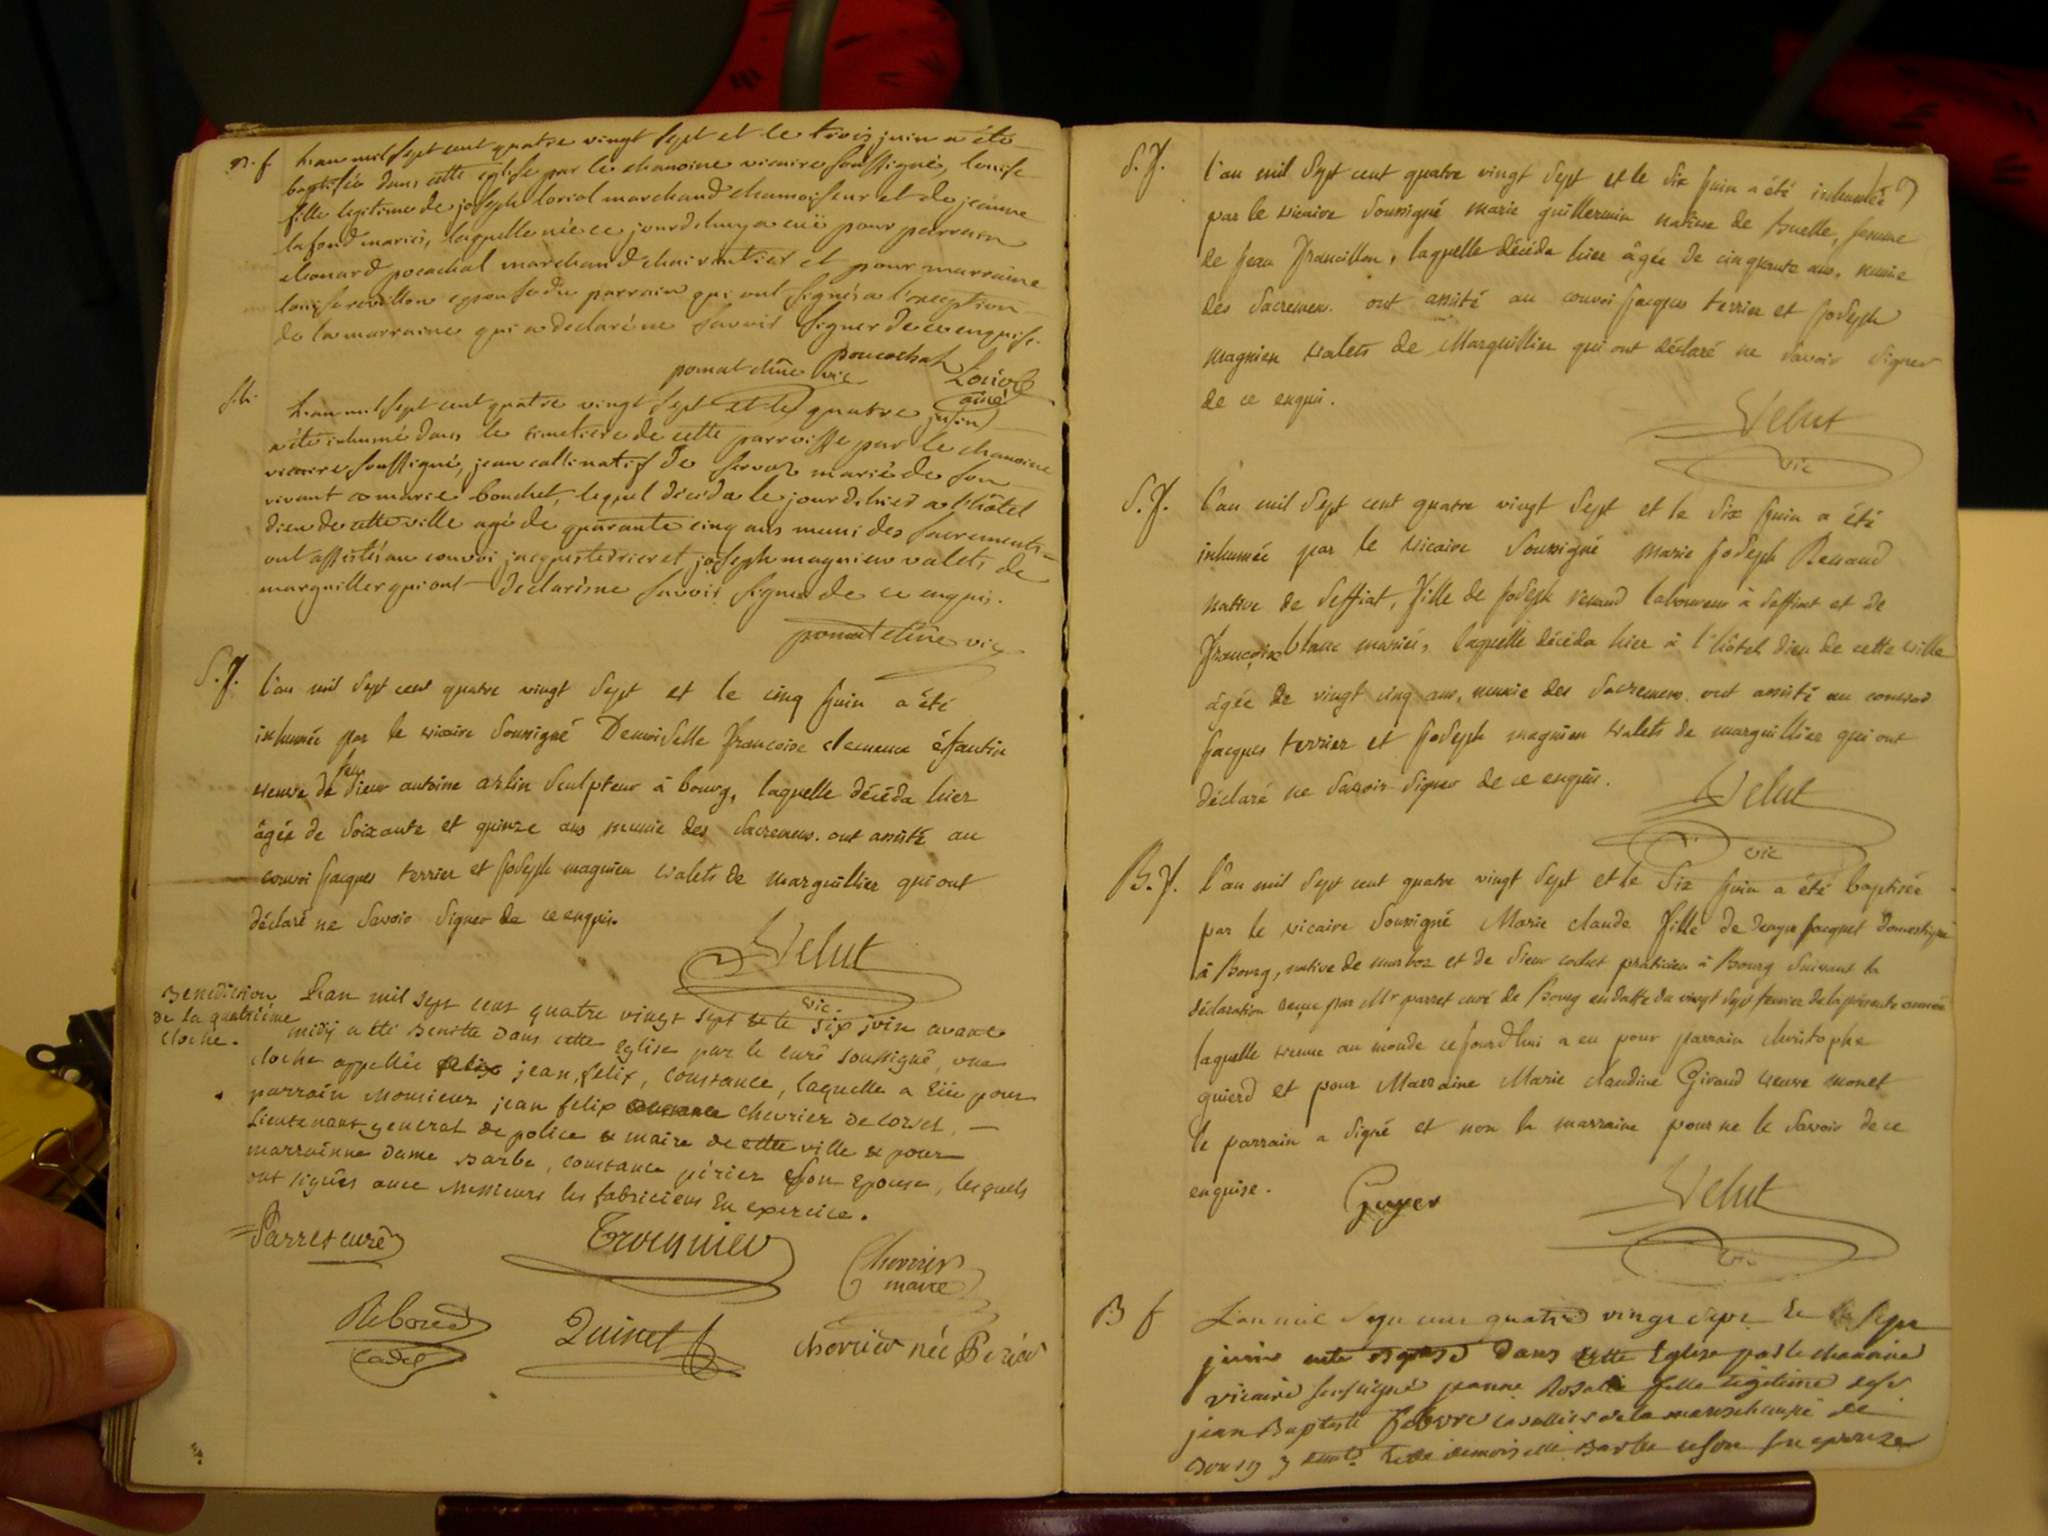 B. f
L'an mil sept cent quatre vingt sept et le trois juin a été
baptisée dans cette eglise par le chanoine vicaire soussigné, louise
fille legitime de joseph loriol marchand chamoiseur et de jeanne
lafond mariés, laquelle née ce jourdhuy a eü pour parrain
pocachat marchand et pour marraine
louise revillon epouse du parrain qui ont signés a l'exception
de la marraine qui a declaré ne savoir signer de ce enquise.
poncachat
vic
Loriol
ainé
L'an mil sept cent quatre vingt sept et le quatre juin
a été inhumé dans le cimetiere de cette parroisse par le chanoine
vicaire soussigné, jean natif de marié de son
vivant a marie bouchet, lequel décéda le jour d'hier a l'hôtel
dieu de cette ville agé de quarante cinq ans muni des sacrements
ont assistés au convoi jacques terrier et joseph magnien valets de
marguiller qui ont declarés ne savoir signer de ce enquis.
vic
S. f.
l'an mil sept cent quatre vingt sept et le cinq juin a été
inhumée par le vicaire soussigné Demoiselle francoise
veuve de feu sieur antoine arlin sculpteur à bourg, laquelle décéda hier
âgée de soixante et quinze ans munie des sacremens. ont assisté au
convoi jacques terrier et joseph magnien valets de marguillier qui ont
déclaré ne savoir signer de ce enquis.
Velut
vic.
Benediction
de la quatrieme
cloche.
L'an mil sept cent quatre vingt sept & le six juin avant
midy a été benitte dans cette eglise par le curé soussigné, une
cloche appellée felix jean, felix, constance, laquelle a eüe pour
parrain monsieur jean felix constance chevrier de corcel,
lieutenant general de police & maire de cette ville & pour
marrainne dame barbe, constance périer son epouse, lesquels
ont signés avec messieurs les fabriciens en exercice.
Parret curé
Chevrier
maire
Reboud
cadet
Quinet
chevrier née Perier
S. f.
l'an mil sept cent quatre vingt sept et le six juin a été inhumée
par le vicaire soussigné marie guillermin native de buelle, femme
de jean francillon, laquelle décéda hier âgée de cinquante ans, munie
des sacremens. ont assisté au convoi jacques terrier et joseph
magnien valets de Marguillier qui ont déclaré ne savoir signer
de ce enquis.
Velut
vic
S. f.
l'an mil sept cent quatre vingt sept et le six juin a été
inhumée par le vicaire soussigné marie joseph Renaud
native de seffiat, fille de joseph renaud laboureur à seffiat et de
françoise blanc mariés, laquelle décéda hier à l'hôtel dieu de cette ville
âgée de vingt cinq ans, munie des sacremens. ont assisté au convoi
jacques terrier et joseph magnien valets de marguillier qui ont
déclaré ne savoir signer de ce enquis.
Velut
vic
B. f.
l'an mil sept cent quatre vingt sept et le six juin a été baptisée
par le vicaire soussigné Marie claude fille de jacquet domestique
à Bourg, native de marboz et de sieur cochet praticien à Bourg suivant la
déclaration recue par Mr parret curé de Bourg en datte du vingt sept fevrier de la présente année
laquelle venue au monde ce jourd'hui a eu pour parrain christophe
guierd et pour Marraine Marie claudine Giraud veuve monet
le parrain a signé et non la marraine pour ne le savoir de ce
enquise.
Velut
vic
B f
L'an mil sept cent quatre vingt sept le sept
juin dans cette Eglise par le chanoine
vicaire soussigné jeanne Rosalie fille légitime de sr
jean Baptiste febvre cavallier de la marechaussée de
Bourg demoiselle Barbe son epouse